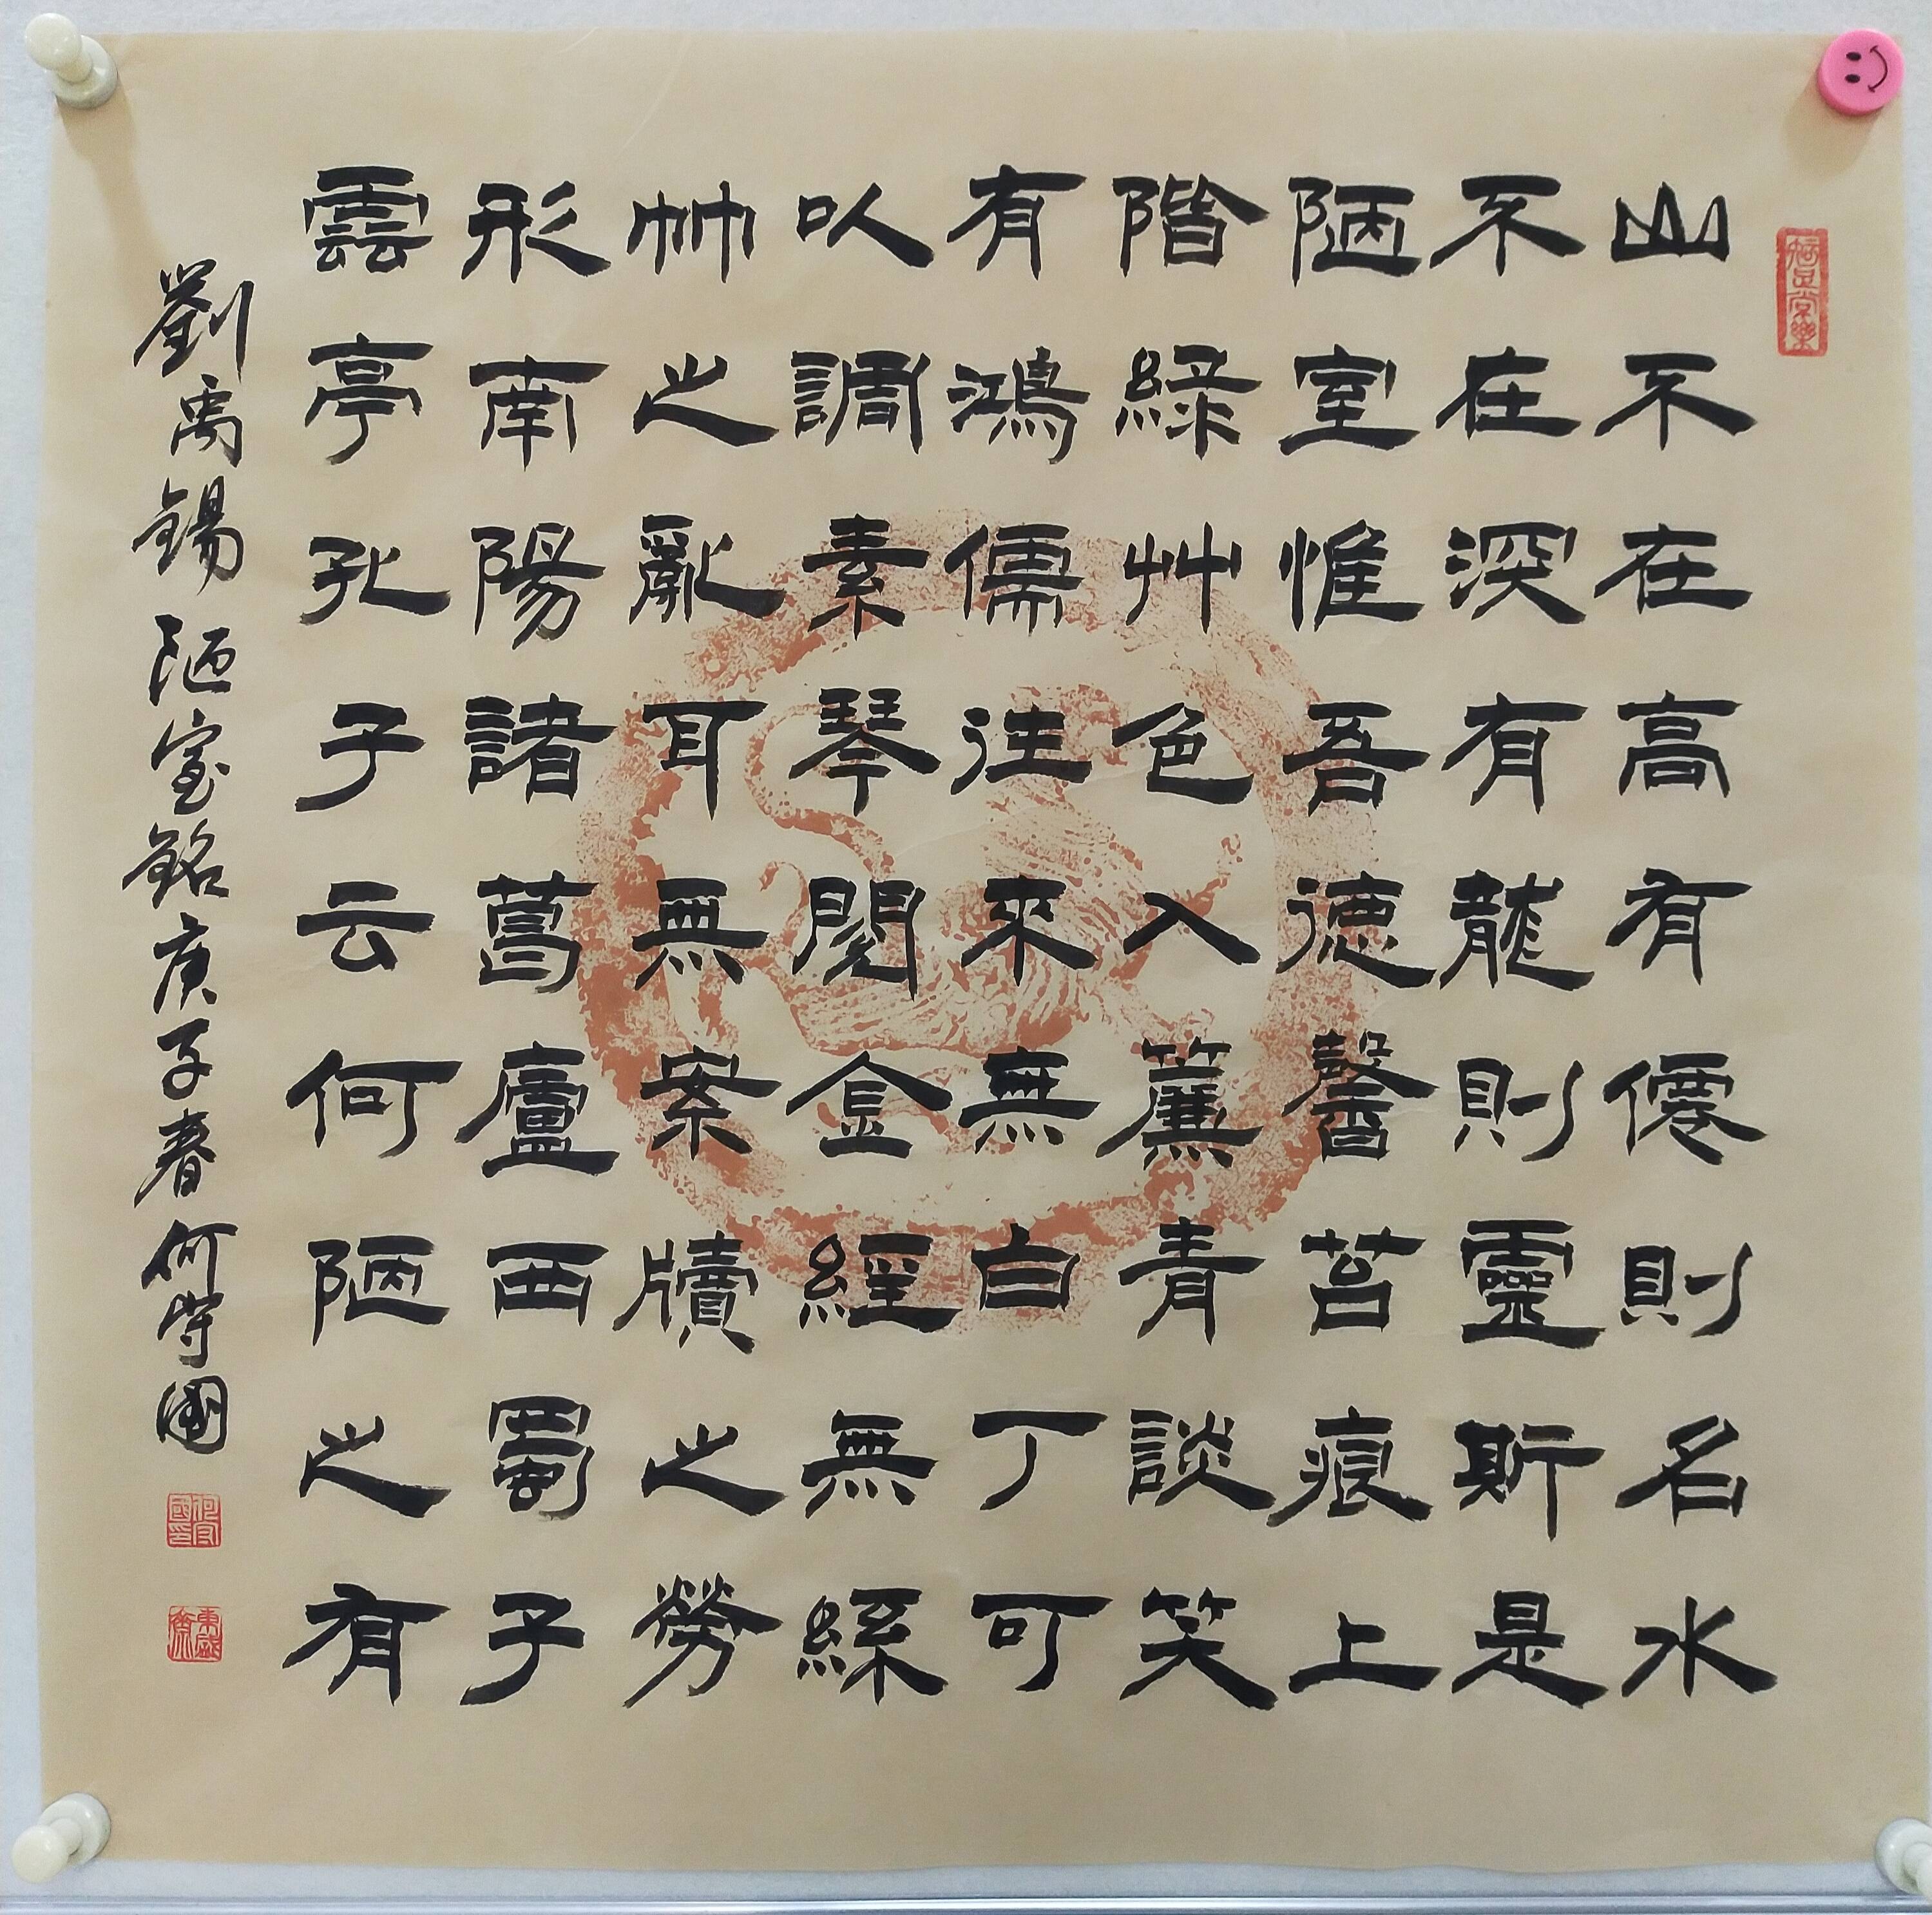 知足常樂
山不在高有僊則名水
不在深有龍則靈斯是
陋室惟吾德馨苔痕上
階綠艸色入簾青談笑
有鴻儒往來無白丁可
以調素琴閱金經無絲
竹之亂耳無案牘之勞
形南陽諸葛廬西蜀子
雲亭孔子云何陋之有
劉禹錫陋室銘庚子春何國